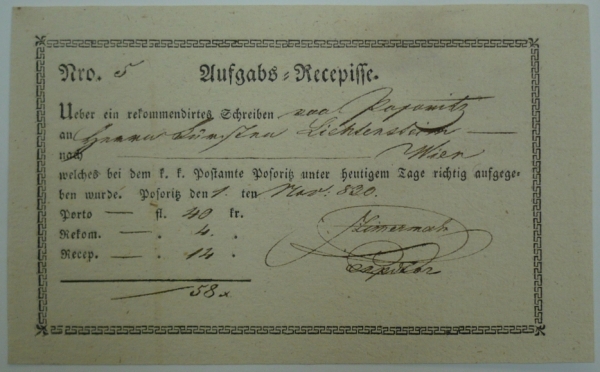 Nro. 5 Aufgabs-Recepisse.
Ueber ein rekommendirtes Schreiben
an Herrn Fürsten Lichtenstein
nach Wien
welches bei dem k. k. Postamte Posoritz unter heutigem Tage richtig aufgege-
ben wurde. Posoritz den 1. ten Nov. 830.
Porto — fl. 40 kr.
Rekom. — 4. .
Recep. — 14 .
58 x